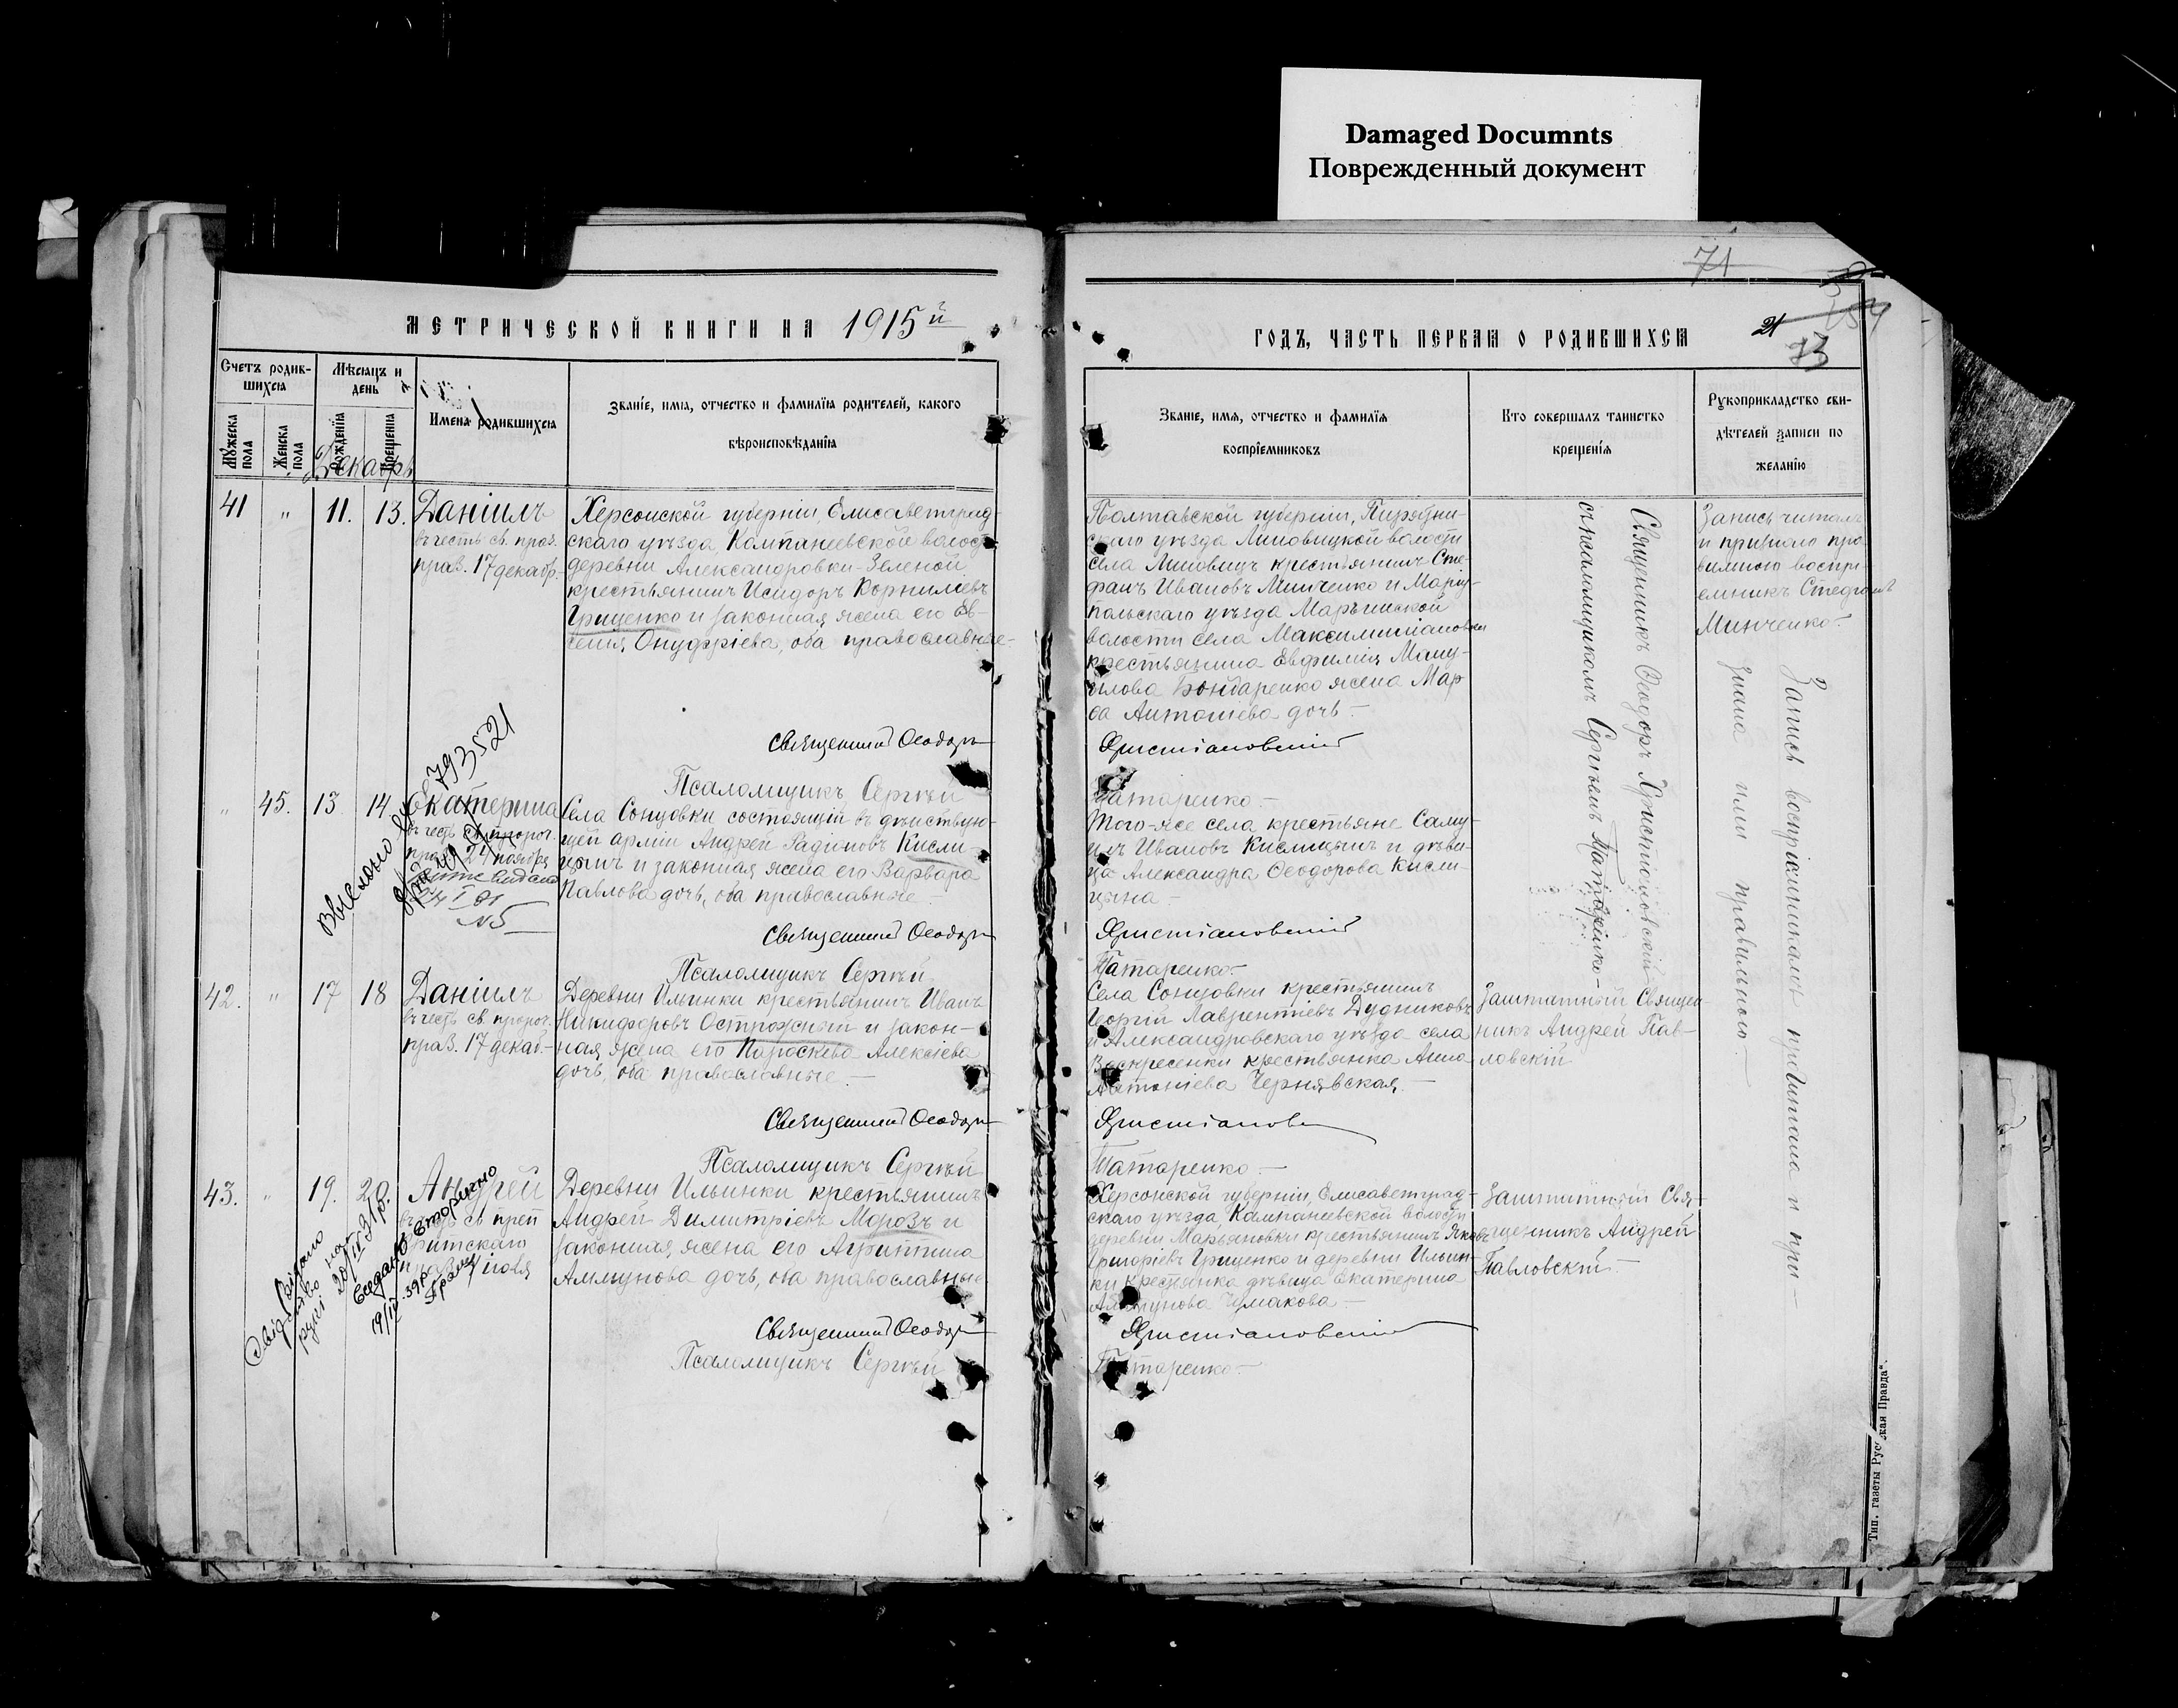 Damaged Documnts
Поврежденный документ
71
МЕТРИЧЕСКОЙ КНИГИ НА 1915й
ГОДЪ, ЧАСТЬ ПЕРВАЯ О РОДИВШИХСЯ
21
73
Счетъ родив-
шихся
Мѣсяцъ и
день
Мужеска
пола
Женска
пола
Рожденія
Крещенія
Имена родившихся
Званіе, имя, отчество и фамилія родителей, какого
вѣроисповѣданія
Званіе, имя, отчество и фамилія
воспріемниковъ
Кто совершалъ таинство
крещенія
Рукоприкладство сви-
дѣтелей записи по
желанію
Декабрь
41 " 11. 13. Даніилъ
въ честь св. прор.
праз. 17 декабр.
Херсонской губерніи, Елисаветград-
скаго уѣзда, Компанеевской волост
деревни Александровки-Зеленой
крестьянинъ Исидоръ Корниліевъ
Грищенко и законная жена его Ев-
генія Онуфріева, оба православные-
Священникъ Ѳеодоръ
Псаломщикъ Сергѣй
Полтавской губерніи, Пирятин-
скаго уѣзда Линовицкой волости
села Линовицъ крестьянинъ Сте-
фанъ Ивановъ Минченко и Маріу-
польскаго уѣзда Марьинской
волости села Максимиліановки
крестьянина Евфимія Ману-
илова Бондаренко жена Мар
ѳа Антоніева дочь-
Христіановскій
Татаренко-
Священникъ Ѳеодоръ Христіановскій
съ псаломщикомъ Сергѣемъ Татаренко-
Запись читалъ
и призналъ пра-
вильною воспрі-
емникъ Стефанъ
Минченко-
Запись воспріемниками прочитана и при-
знана ими правильною-
Выслано
793521
" 45. 13 14. Екатерина
въ честь св.
24 ноября
№5
Села Сонцовки состоящій въ дѣйствую-
щей арміи Андрей Радіоновъ Кисли-
цынъ и законная жена его Варвара
Павлова дочь, оба православные-
Священникъ Ѳеодоръ
Псаломщикъ Сергѣй
Того-же села крестьяне Саму-
илъ Ивановъ Кислицынъ и дѣви-
ца Александра Ѳеодорова Кисли-
цына-
Христіановскій
Татаренко-
42. " 17 18 Даніилъ
въ честь св. пророч.
праз. 17 декаб.-
Деревни Ильинки крестьянинъ Иванъ
Никифоровъ Острожный и закон-
ная жена его Параскева Алексіева
дочь, оба православные.-
Священникъ Ѳеодоръ
Псаломщикъ Сергѣй
Села Сонцовки крестьянинъ
Георгій Лаврентіевъ Дудниковъ
и Александровскаго уѣзда села
Воскресенки крестьянка Анна
Антоніева Чернявская.-
Христіановс
Татаренко-
Заштатный Священ-
никъ Андрей Пав-
ловскій
43. " 19. 20. Андрей
въ честь св преп
Критскаго
праз. 4 іюля
Видано
20/IV 31 р.
вторично
19/IV 39 р.
Деревни Ильинки крестьянинъ
Андрей Димитріевъ Морозъ и
законная жена его Агриппина
Аммунова дочь, оба православные
Священникъ Ѳеодоръ
Псаломщикъ Сергѣй
Херсонской губерніи, Елисаветград-
скаго уѣзда, Компанеевской волости
деревни Марьяновки крестьянинъ Яковъ
Григоріевъ Грищенко и деревни Ильин-
ки крестьянка дѣвица Екатерина
Аммунова Чумакова-
Христіановскій
Татаренко-
Заштатный Свя-
щенникъ Андрей
Павловскій-
Тип. газеты Русская Правда".